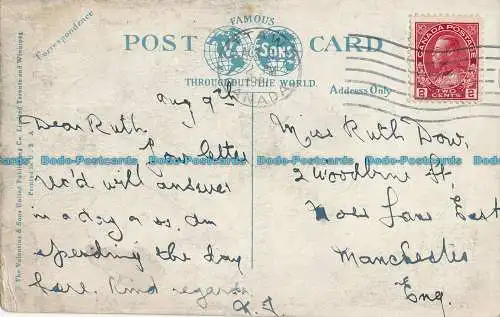 FAMOUS
POST CARD
V&SONS
THROUGHOUT THE WORLD
CANADA
CANADA POSTAGE
2 TWO CENTS 2
Correspondence
Address Only
The Valentine & Sons United Publishing Co. Limited Toronto and Winnipeg
Printed in
Aug 9th
Dear Ruth
Your letter
rec'd will answer
in a day or so. am
spending the day
here. Kind regards
Miss Ruth Dow,
2 Woodbine St,
Moss Lane East
Manchester
Eng.
Dodo-Postcards Dodo-Postcards Dodo-Postcards Dodo-Postcards Dodo-Postcards